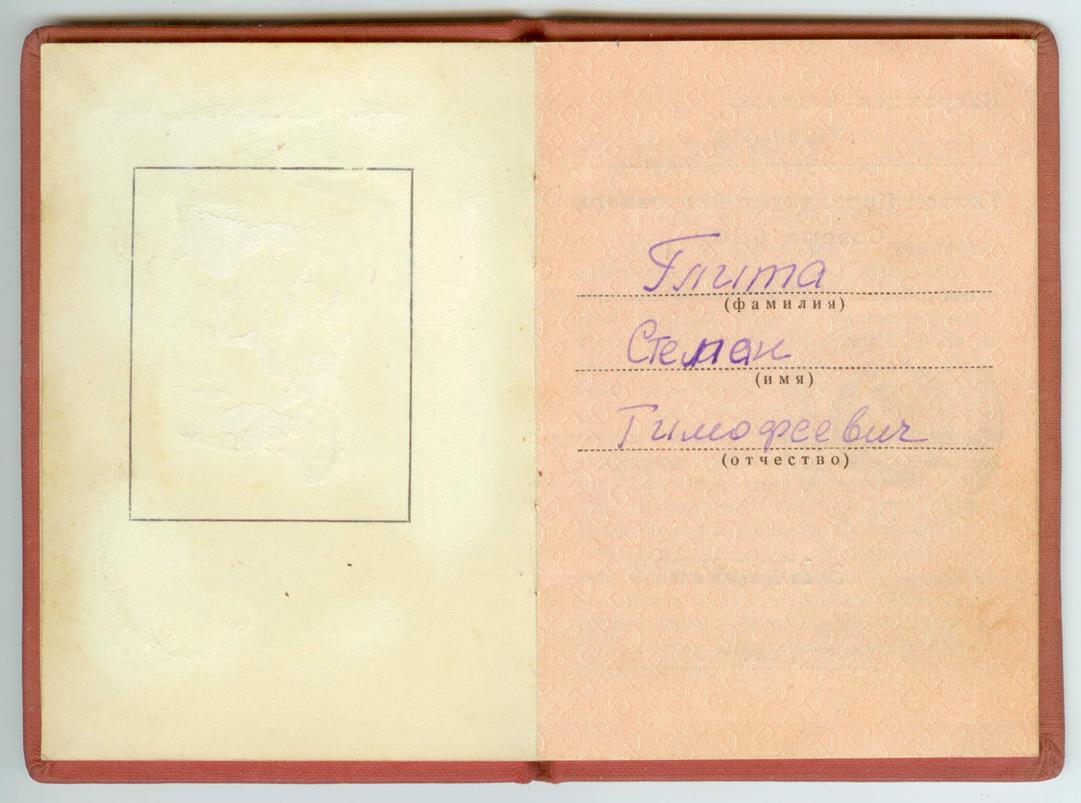 Глита
(фамилия)
Степан
(имя)
Тимофеевич
(отчество)